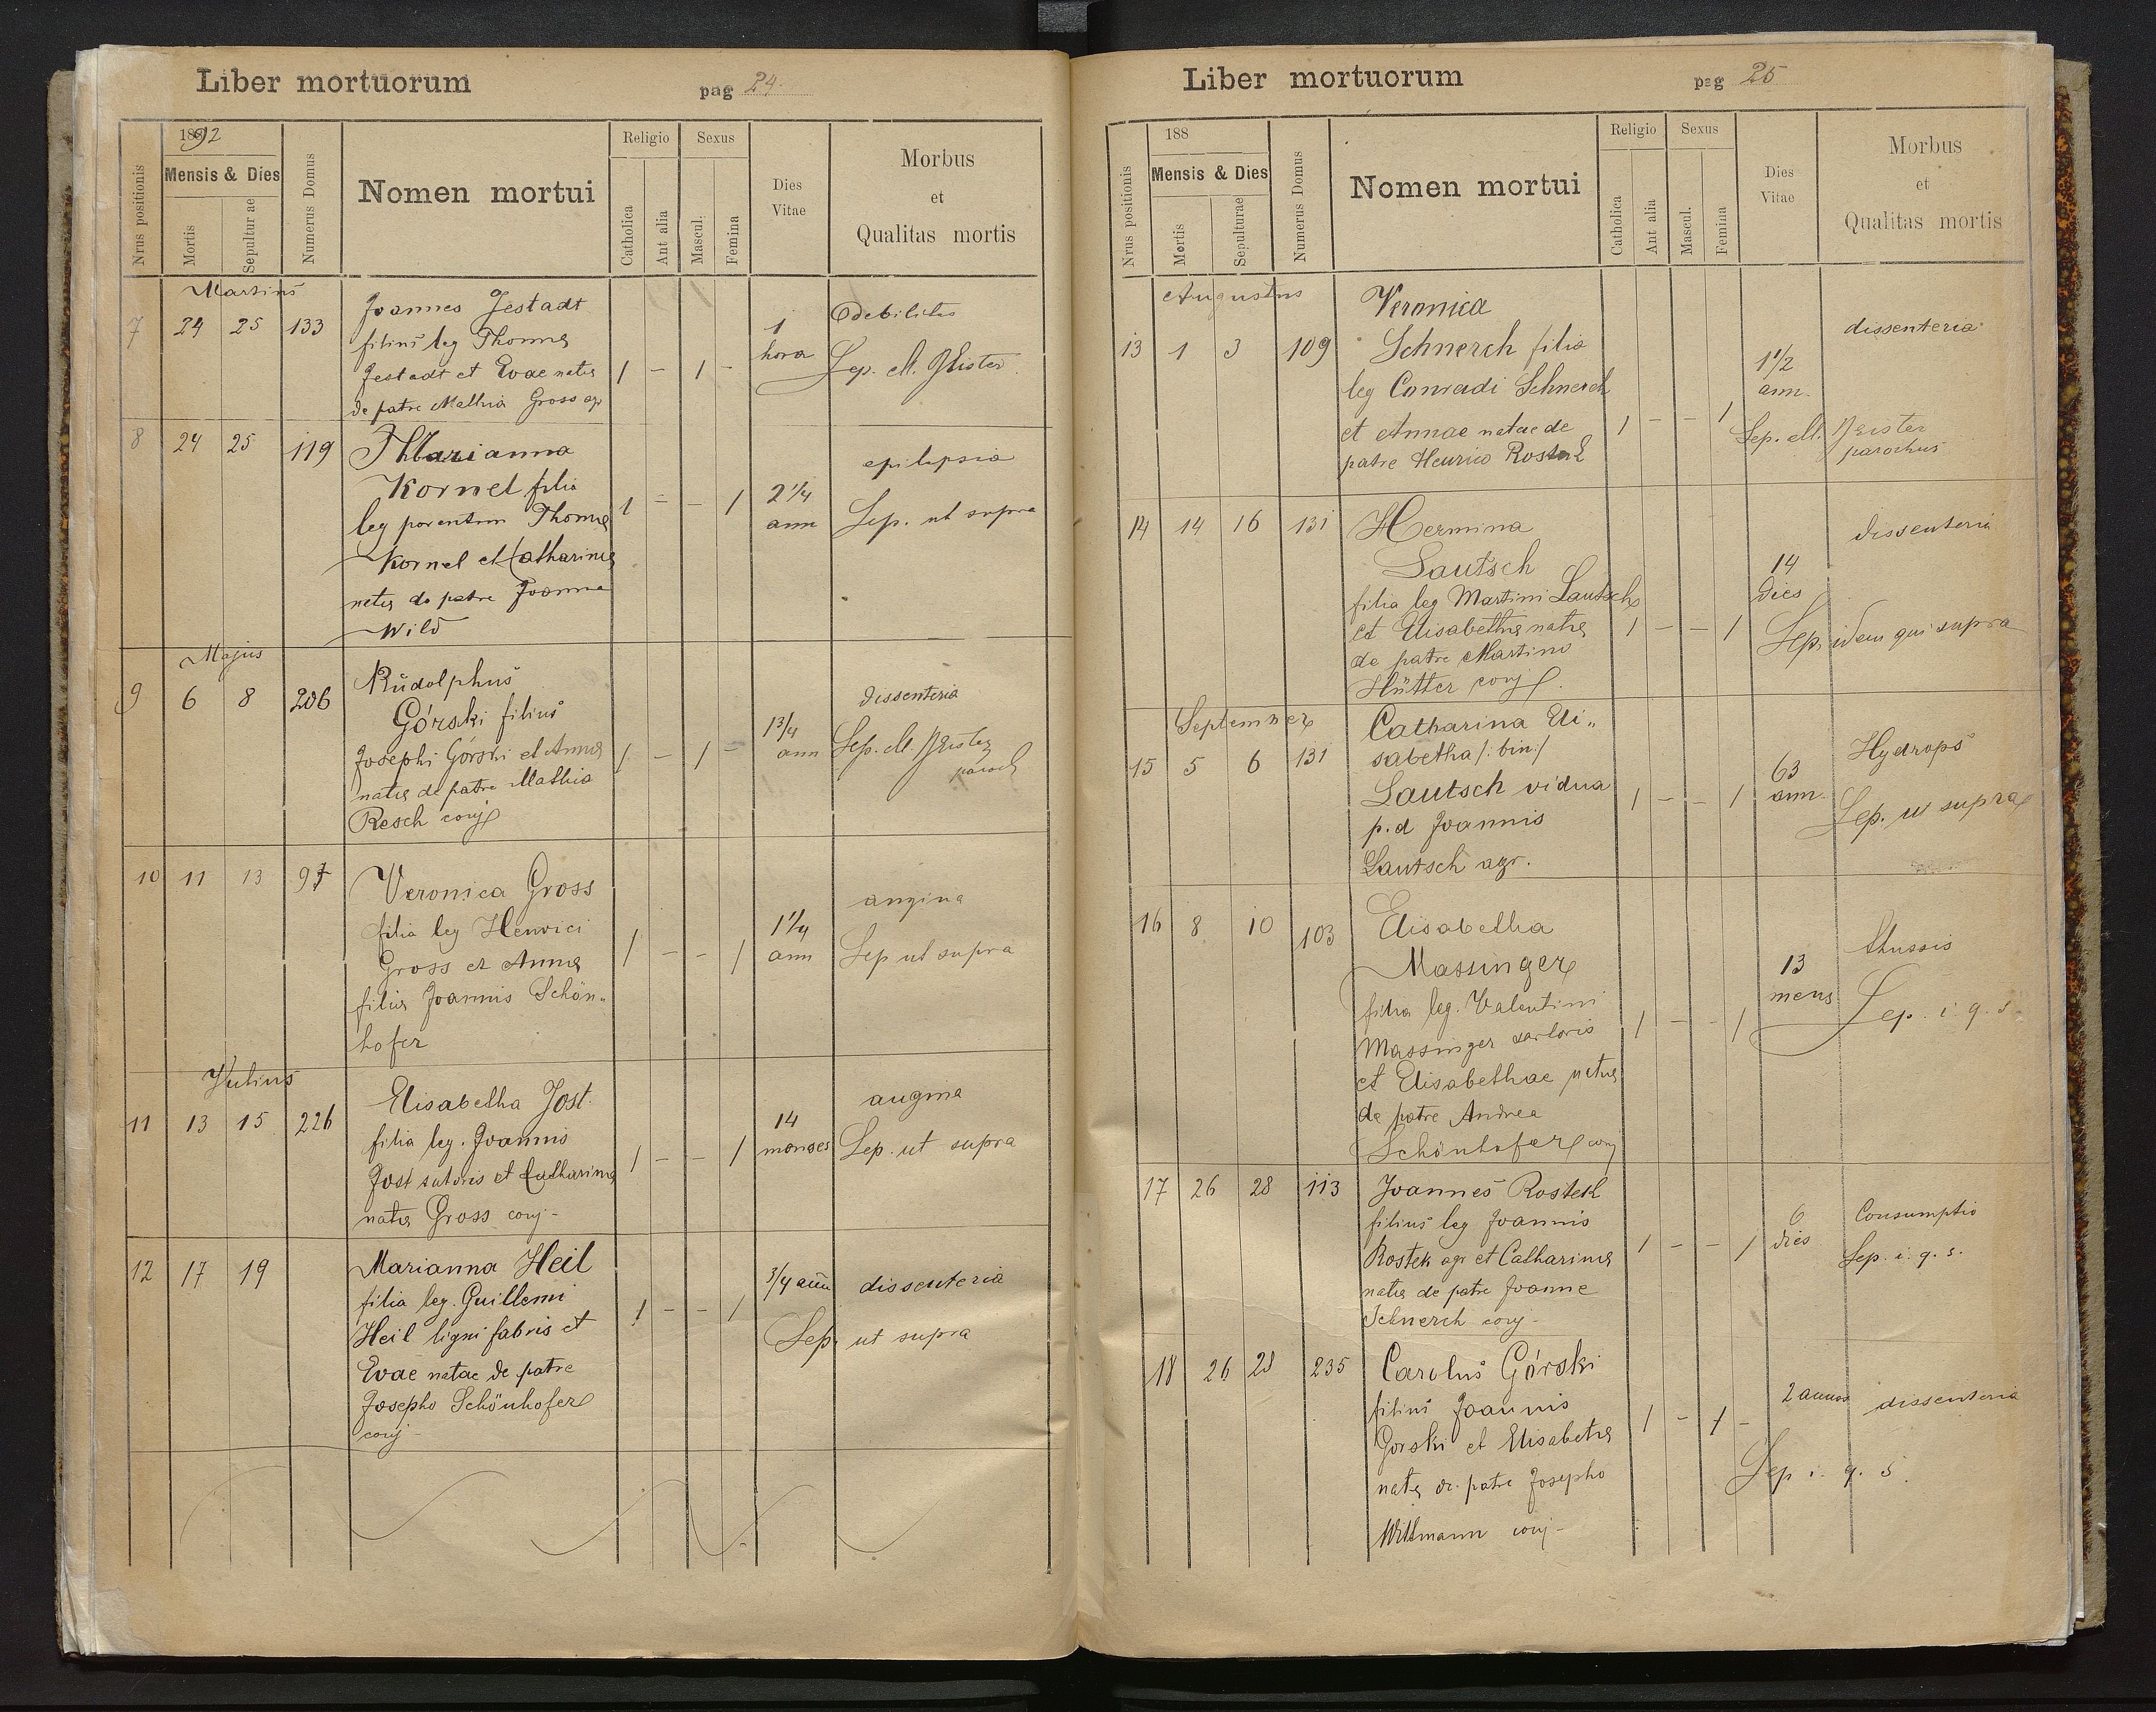 Liber mortuorum
pag 24.
Nrus positionis
1892
Mensis & Dies
Mortis
Sepulturae
Numerus Domus
Nomen mortui
Religio
Catholica
Aut alia
Sexus
Mascul.
Femina
Dies
Vitae
Morbus
et
Qualitas mortis
Martius
7 24 25 133
Joannes Jestadt
filius leg Thomae
Jestadt et Evae natae
de patre Mathia Gross
1 - 1 -
1
hora
debilitas
Sep. M.
8 24 25 119
Marianna
Kornel filia
leg parentum Thomae
Kornel et Catharinae
natae de patre Joanne
Wild
1 - - 1
2 1/4
ann
epilepsia
Sep. ut supra
Majus
9 6 8 206
Rudolphus
Górski filius
Josephi Górski et Annae
natae de patre Mathia
Resch conj
1 - 1 -
1 3/4
ann
dissenteria
Sep. M.
paroch
10 11 13 97
Veronica Gross
filia leg Henrici
Gross et Annae
filiae Joannis Schön-
hofer
1 - - 1
1 1/4
ann
angina
Sep ut supra
Julius
11 13 15 226
Elisabetha Jost
filia leg. Joannis
Jost sutoris et Catharinae
natae Gross conj-
1 - - 1
14
menses
angina
Sep. ut supra
12 17 19
Marianna Heil
filia leg. Guillemi
Heil ligni fabris et
Evae natae de patre
Josepho Schönhofer
conj-
1 - - 1
3/4 ann
dissenteria
Sep. ut supra
Liber mortuorum
pag 25
Nrus positionis
188
Mensis & Dies
Mortis
Sepulturae
Numerus Domus
Nomen mortui
Religio
Catholica
Aut alia
Sexus
Mascul.
Femina
Dies
Vitae
Morbus
et
Qualitas mortis
Augustus
13 1 3 109
Veronica
Schnerch filia
leg Conradi Schnerch
et Annae natae de
patre Henrico Rostek
1 - - 1
1 1/2
ann.
dissenteria
Sep. M.
parochus
14 14 16 131
Hermina
Lautsch
filia leg Martini Lautsch
et Elisabethae natae
de patre Martino
Hütter conj
1 - - 1
14
dies
dissenteria
Sep. idem qui supra
September
15 5 6 131
Catharina Eli-
sabetha /: bin :/
Lautsch vidua
p.d Joannis
Lautsch agr.
1 - - 1
63
ann.
Hydrops
Sep. ut supra
16 8 10 103
Elisabetha
Massinger
filia leg. Valentini
Massinger sartoris
et Elisabethae natae
de patre Andrea
Schönhofer conj
1 - - 1
13
mens
thussis
Sep. i. q. s.
17 26 28 113
Joannes Rostek
filius leg Joannis
Rostek agr et Catharinae
natae de patre Joanne
Schnerch conj-
1 - - 1
6
dies
Consumptio
Sep. i. q. s.
18 26 28 235
Carolus Górski
filius Joannis
Gorski et Elisabetae
natae de patre Josepho
Wittmann conj-
1 - 1 -
2 annos
dissenteria
Sep i. q. s.